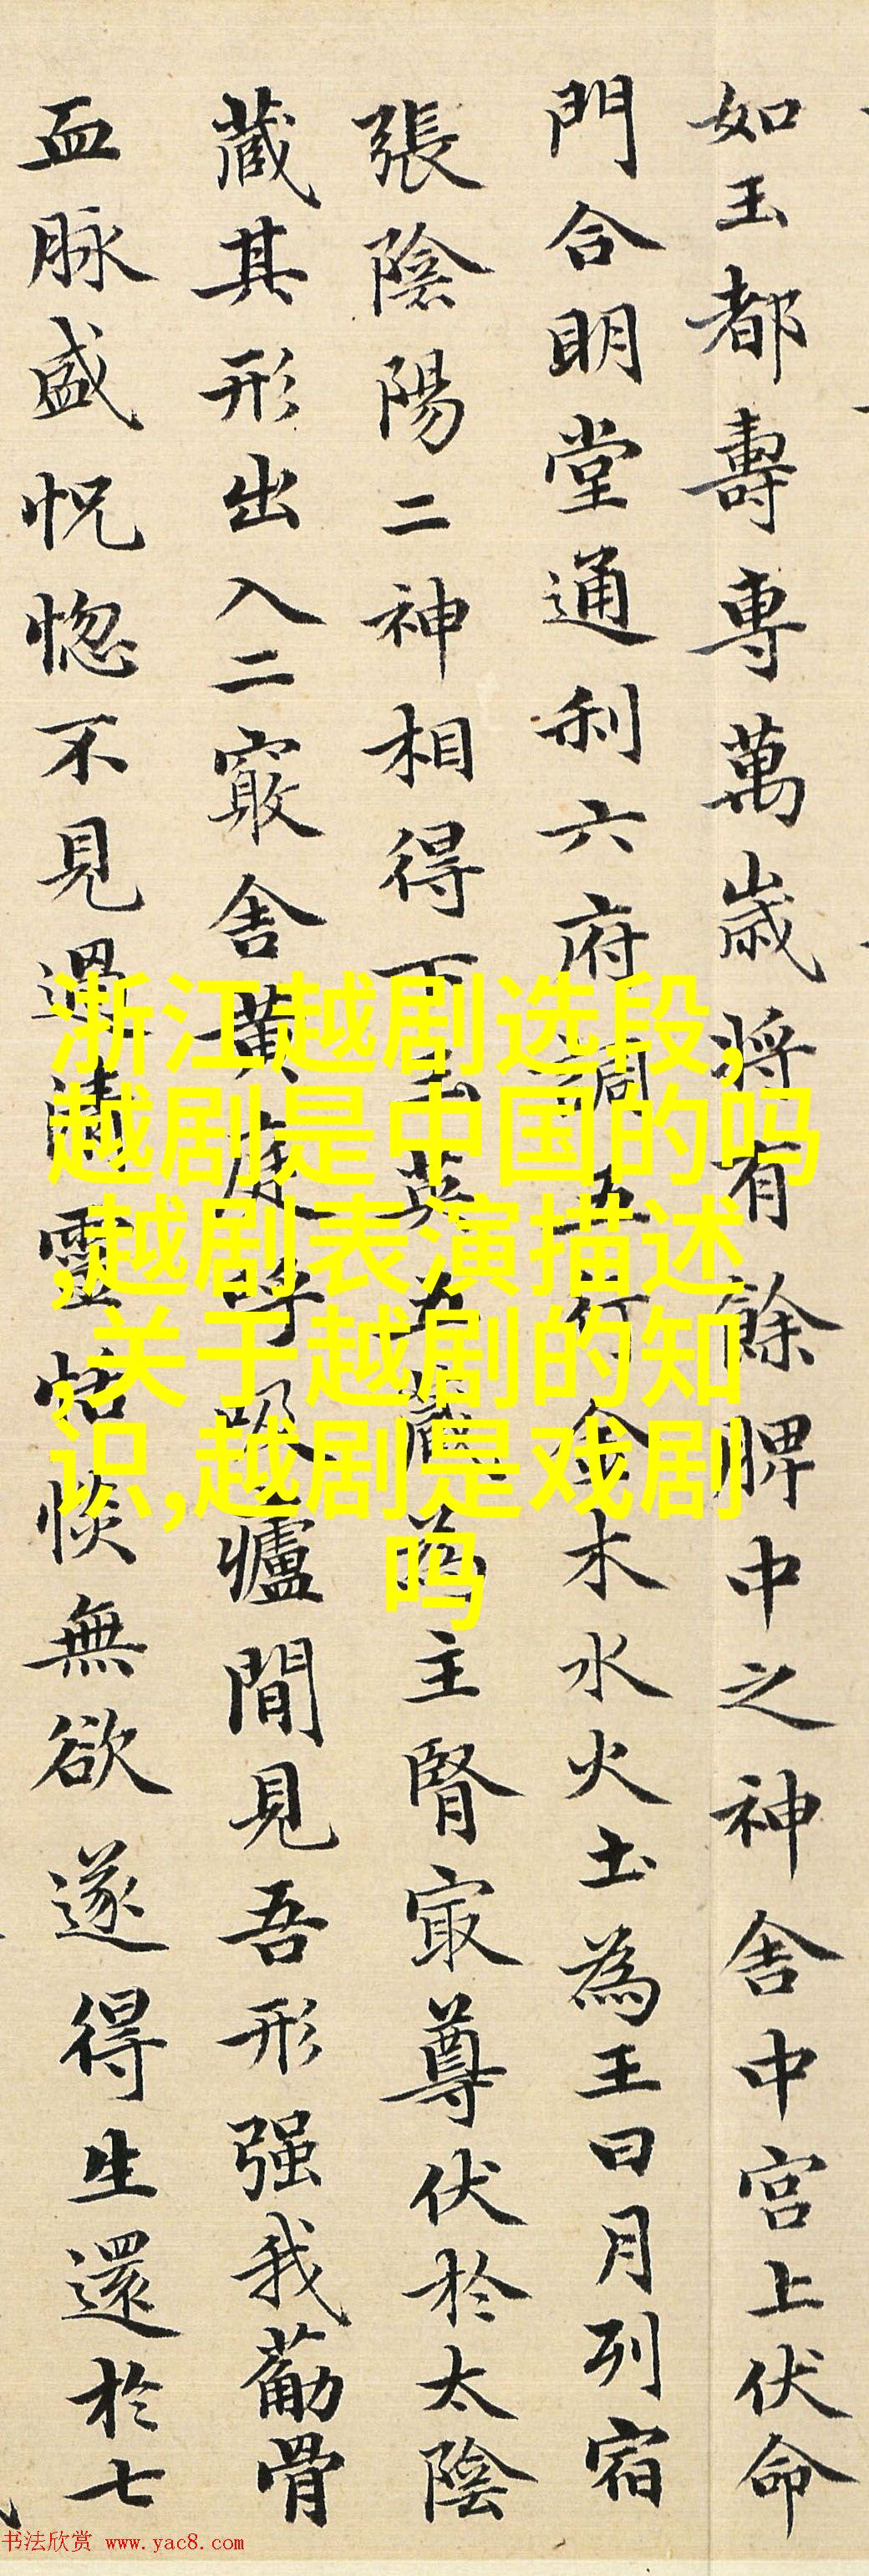 如玉都壽專萬歲將有餘脾中之神舍中宮上伏命
門合明堂通利六府調五行金木水火土為王日月列宿
張陰陽二神相得下玉英五藏為主腎寂尊伏於太陰
藏其形出入二竅舍黃庭呼吸廬間見吾形强我葡骨
血脉盛怳惚不見過清靈恬惔無欲遂得生還於七
浙江越剧选段,
越剧是中国的吗
,越剧表演描述
,关于越剧的知
识,越剧是戏剧
吗
书法欣赏 www.yac8.com